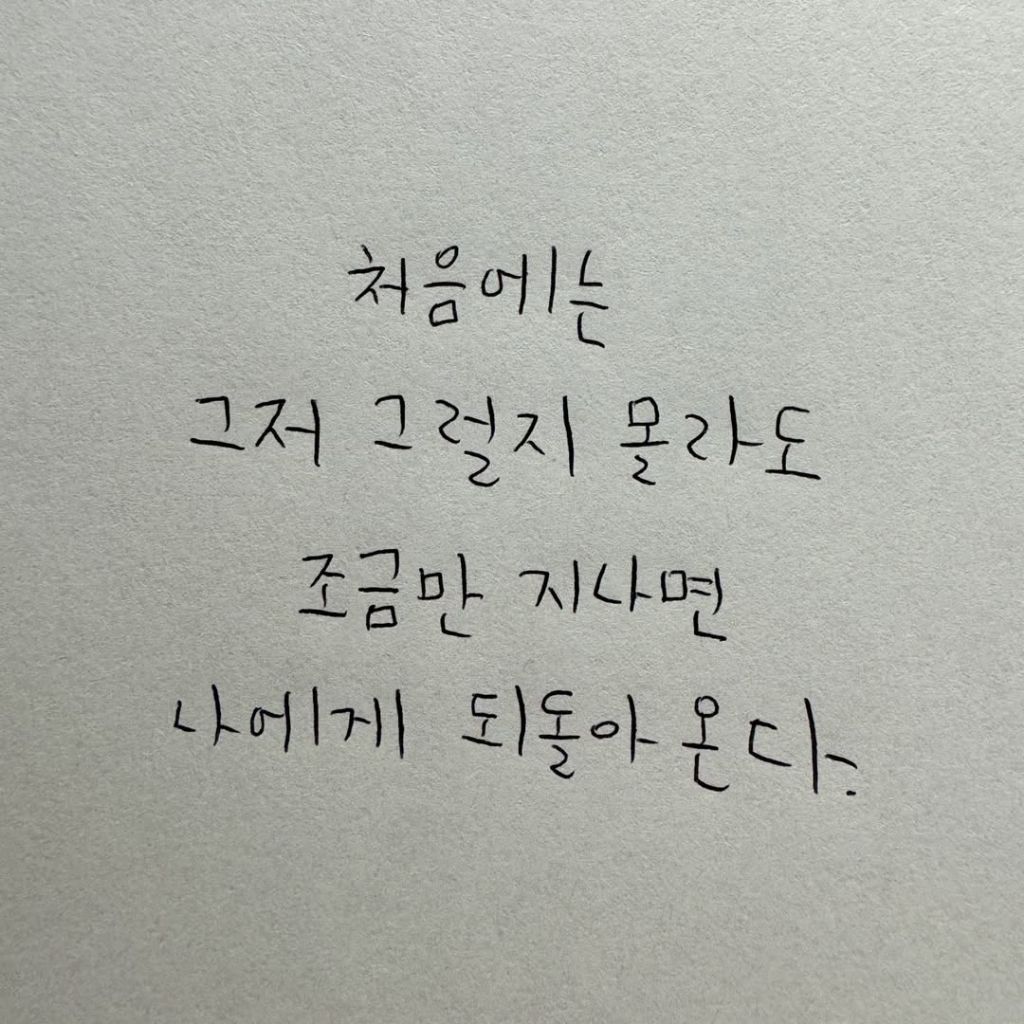 처음에는
그저 그럴지 몰라도
조금만 지나면
나에게 되돌아 온다.